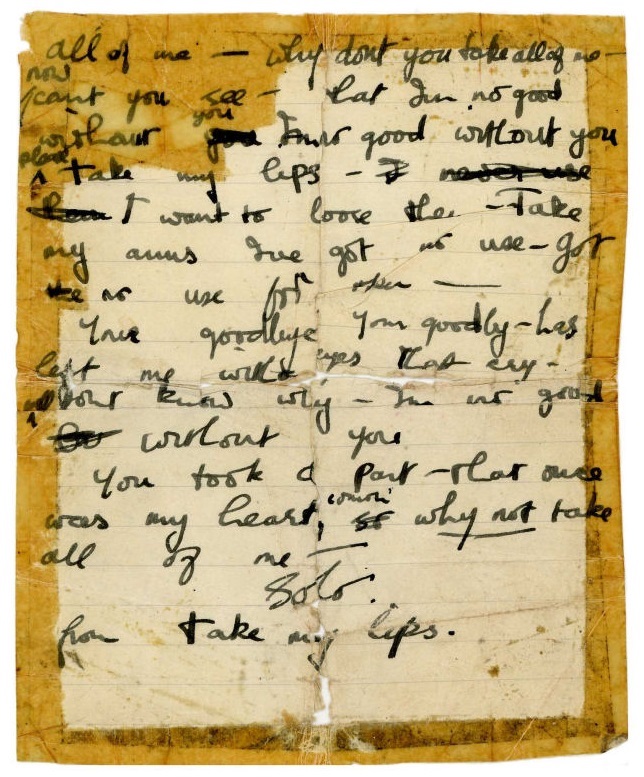 all of me — why dont you take all of me —
now
cant you see — that I'm no good
without you I'm no good without you
please
take my lips — I never use
them I want to loose them — Take
my arms I've got no use — got
no use for
Your goodbye Your goodby — has
left me with eyes that cry —
dont know why — I'm no good
without you
You took a part — that once
was my heart, comon' so why not take
all of me —
Solo.
from take my lips.